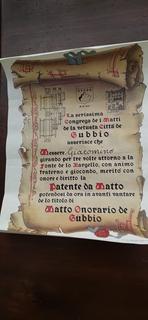 La serissima
Congrega de i Matti
de la vetusta Città de
Gubbio
asserisce che
Messere Giacomino
girando per tre volte attorno a la
Fonte de lo Bargello, con animo
fraterno e giocondo, meritò con
onore e diritto la
Patente da Matto
potendosi da ora in avanti vantare
de lo titolo di
Matto Onorario de
Gubbio